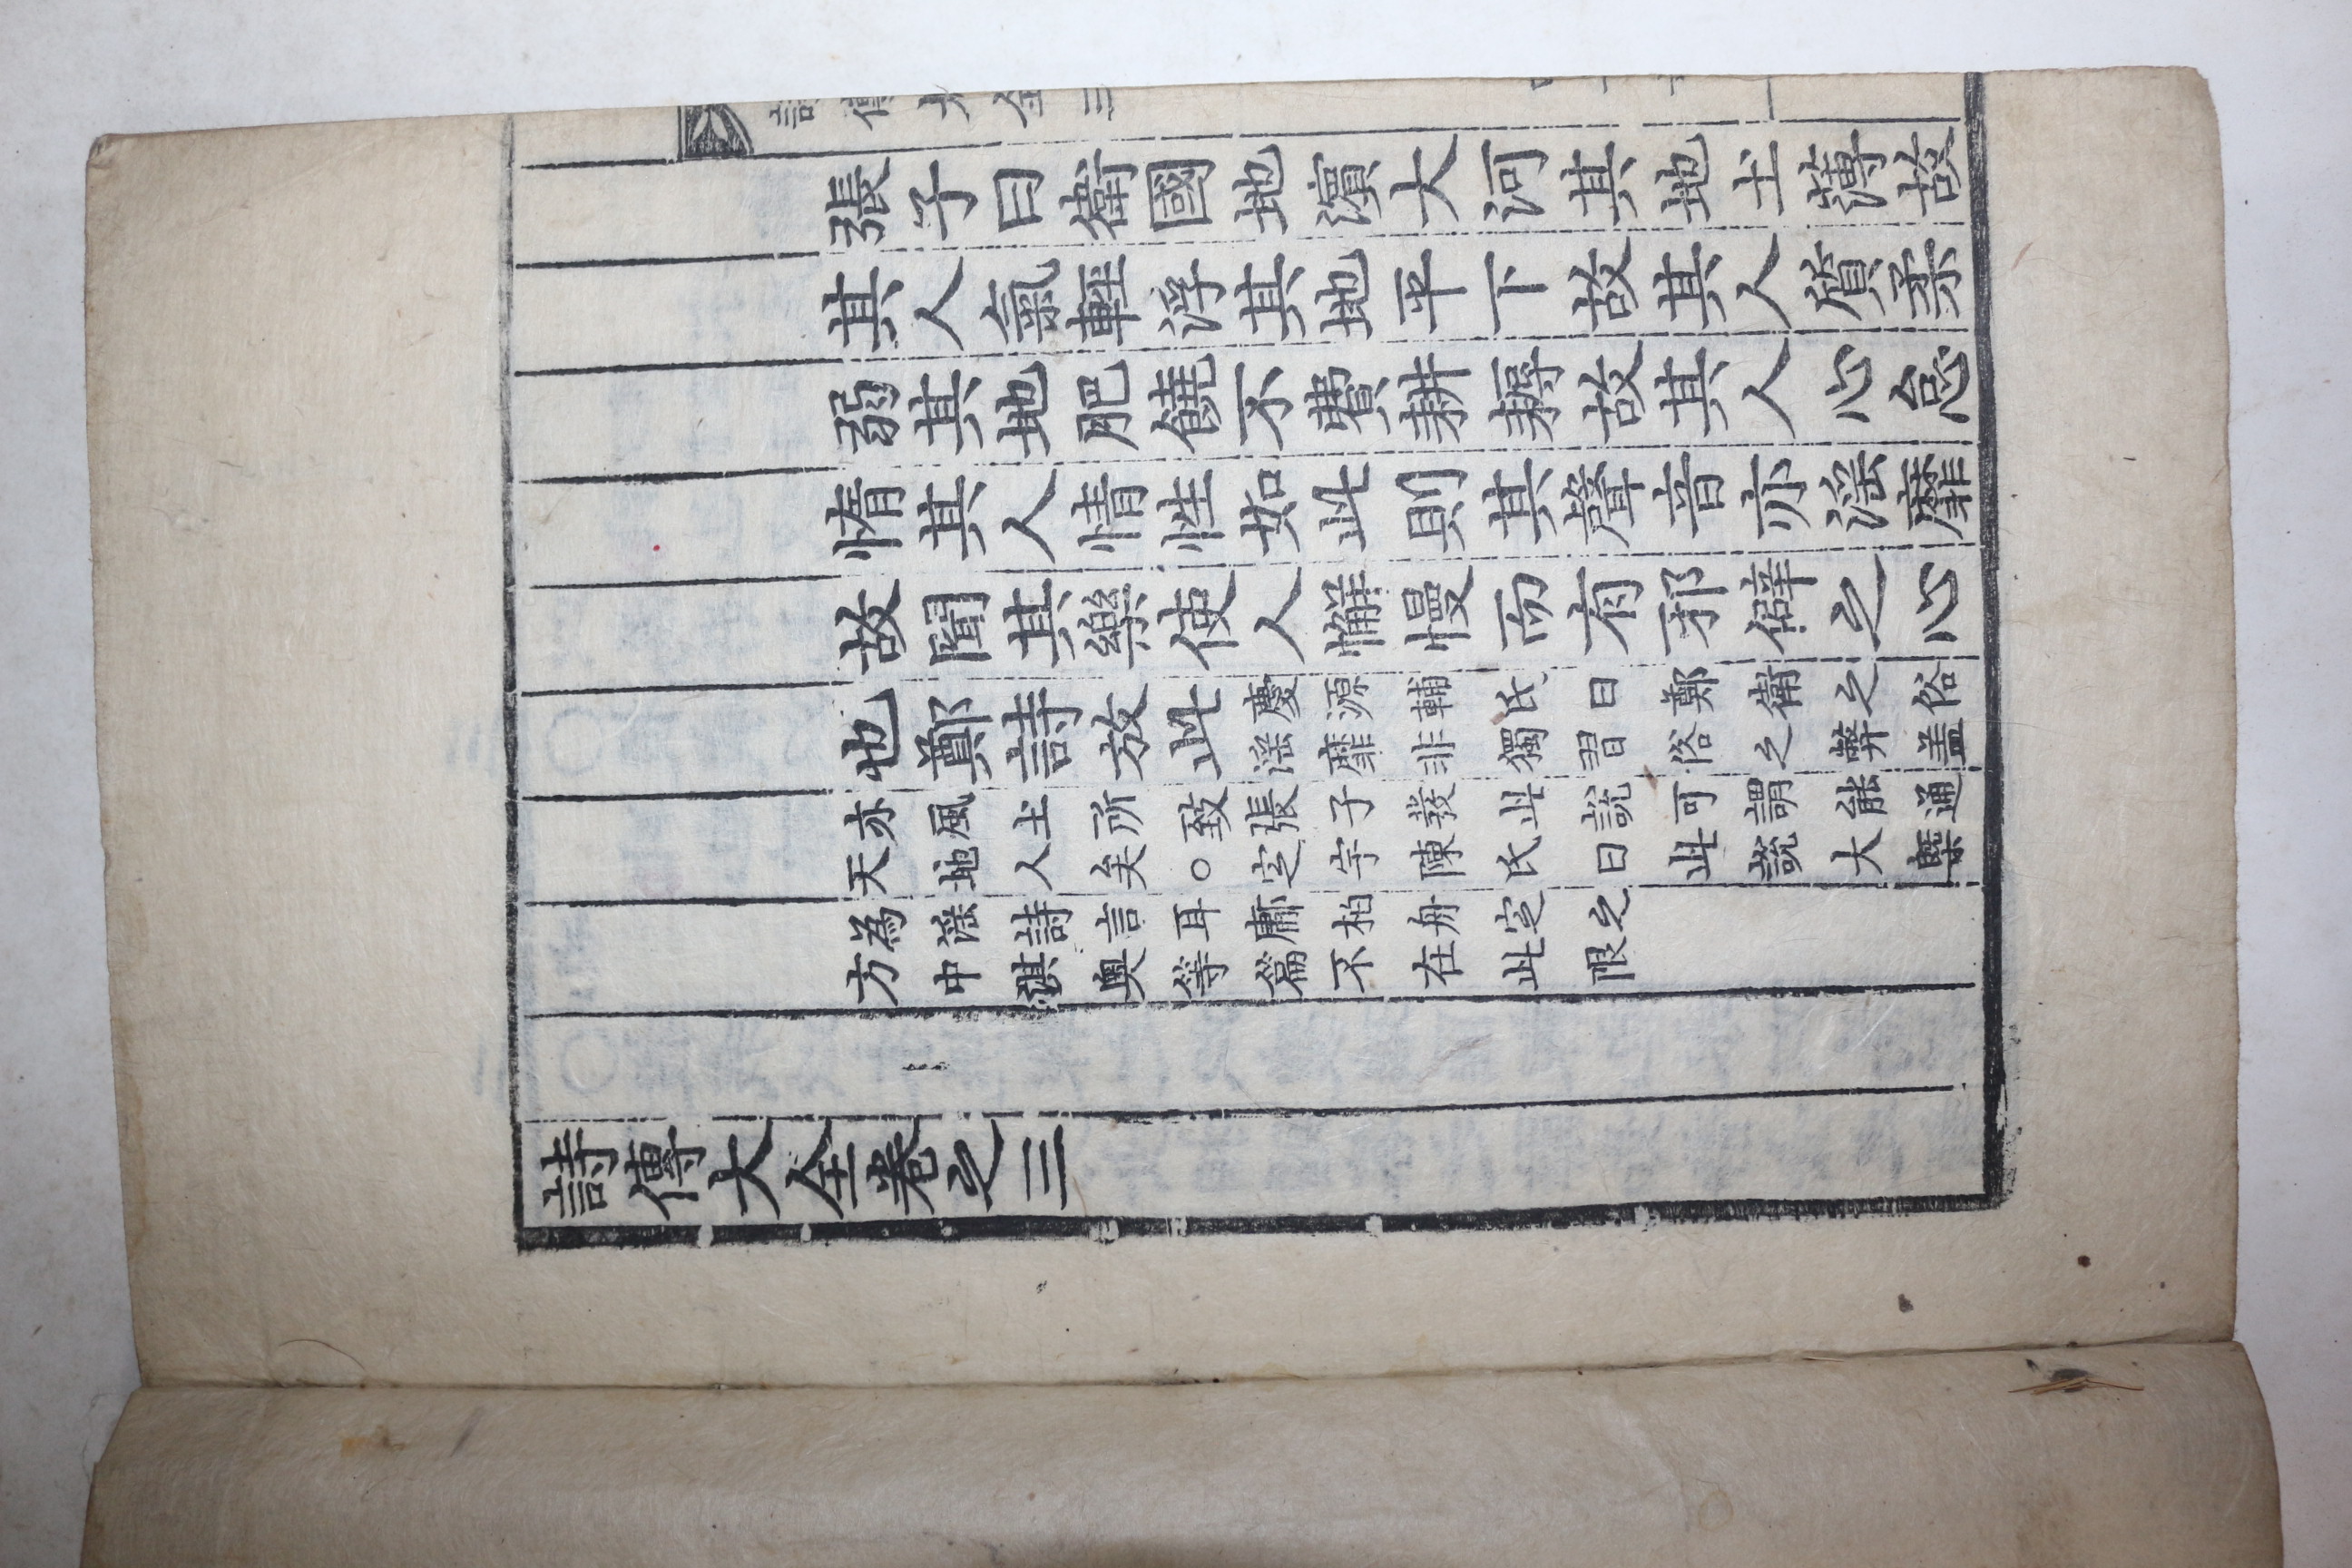 詩傳大全三
張子曰衛國地濱大河其地土薄故
其人氣輕浮其地平下故其人質柔
弱其地肥饒不費耕耨故其人心怠
惰其人情性如此則其聲音亦淫靡
故聞其樂使人懈慢而有邪僻之心
也鄭詩放此慶源輔氏曰鄭衛之俗
淫靡非獨習俗之弊盖
亦風土所致張子發此說可謂能通
天地人矣○定宇陳氏曰此說大槩
為淫詩言耳鄘柏舟定之
方中淇奧等篇不在此限
詩傳大全卷之三